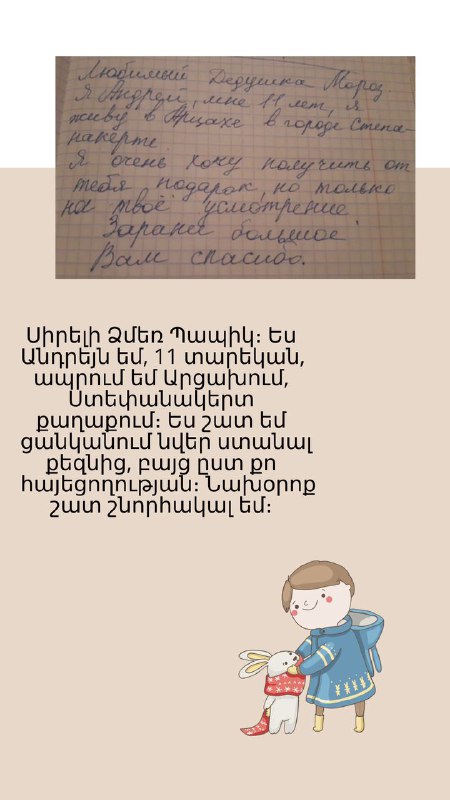 Любимый Дедушка Мороз
Я Андрей, мне 11 лет, я
живу в Арцахе в городе Степа-
накерте.
Я очень хочу получить от
тебя подарок, но только
на твоё усмотрение.
Заранее большое
Вам спасибо.
Սիրելի Ձմեռ Պապիկ։ Ես
Անդրեյն եմ, 11 տարեկան,
ապրում եմ Արցախում,
Ստեփանակերտ
քաղաքում։ Ես շատ եմ
ցանկանում նվեր ստանալ
քեզնից, բայց ըստ քո
հայեցողության։ Նախօրոք
շատ շնորհակալ եմ։